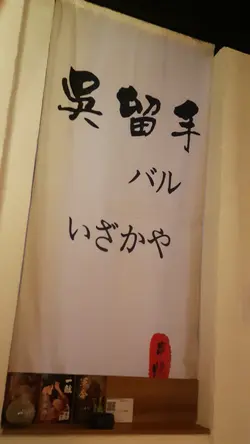 呉留手
バル
いざかや